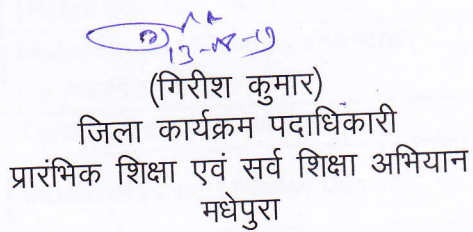 13-08-19
(गिरीश कुमार)
जिला कार्यक्रम पदाधिकारी
प्रारंभिक शिक्षा एवं सर्व शिक्षा अभियान
मधेपुरा